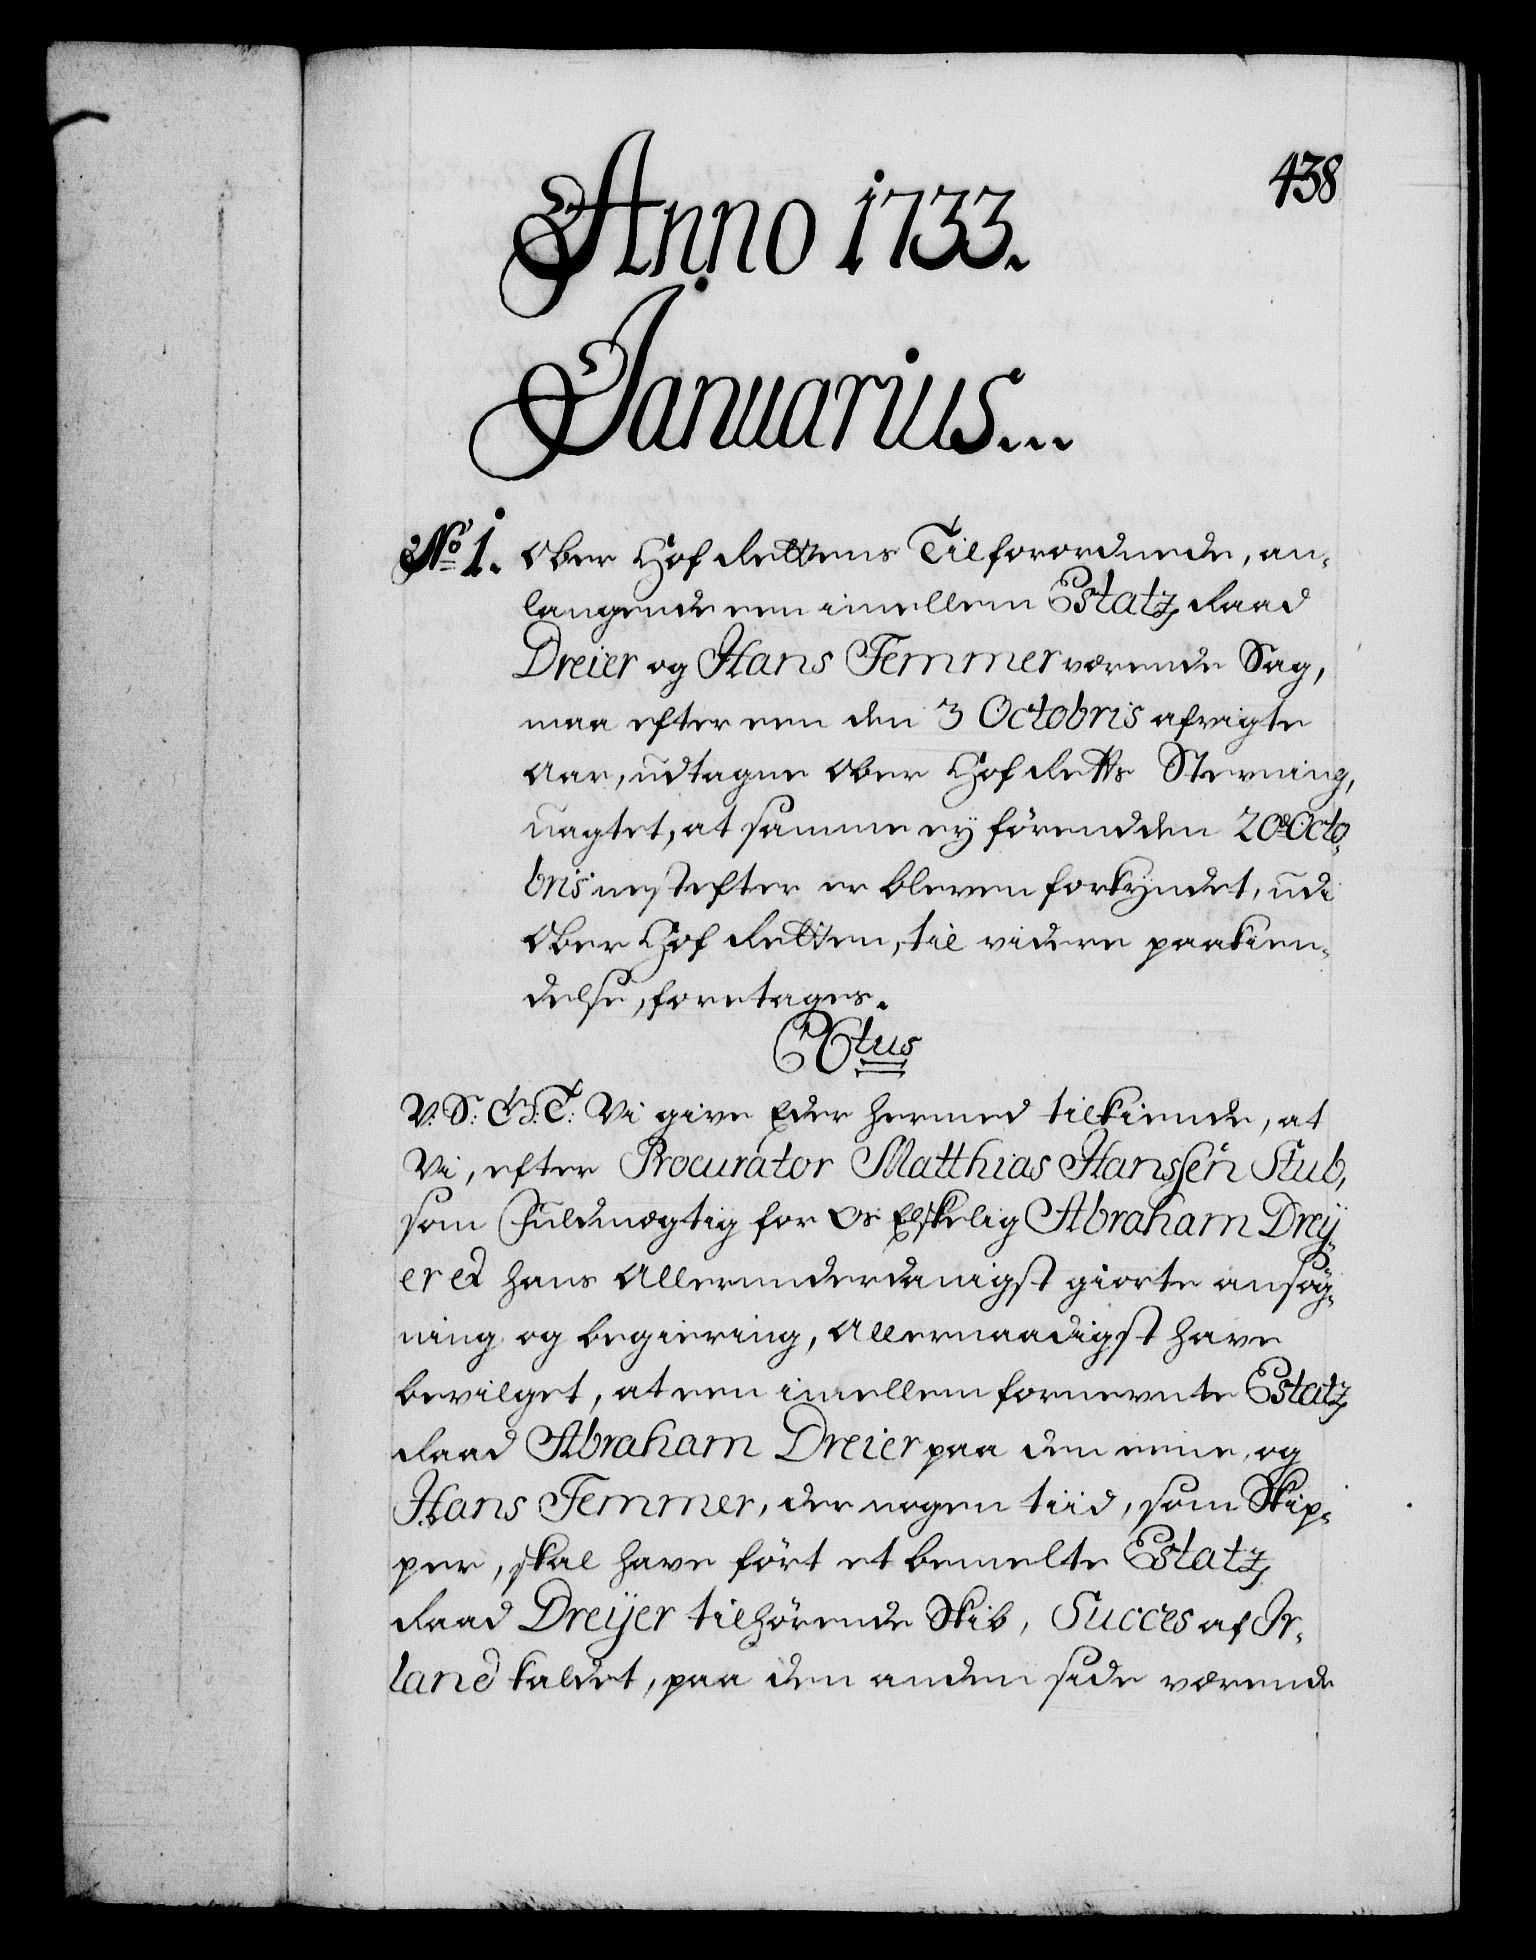 438
Anno 1733.
Januarius...
No. 1. Ober Hof Rettens Tilforordnede, an-
langende een imellem Estatz Raad
Dreier og Hans Temmer værende Sag,
maa efter een den 3 Octobris afvigte
Aar, udtagne Ober Hof Retts Stevning,
uagtet, at samme ey förend den 20de Octo-
bris nestefter er bleven forkyndet, udi
Ober Hof Retten, til videre paakien-
delse, foretages.
C6tus
V. S. G. T: Vi give Eder hermed tilkiende, at
Vi, efter Procurator Matthias Hanssen Stub,
som Fuldmægtig for Os Elskelig Abraham Drey-
er et hans Allerunderdanigst giorte ansøg-
ning og begiering, Allernaadigst have
bevilget, at een imellem fornevnte Estatz
Raad Abraham Dreier paa den eene, og
Hans Temmer, der nogen tiid, som Skip-
per, skal have fört et bemelte Estatz
Raad Dreÿer tilhörende Skib, Succes af Ir-
land kaldet, paa den anden side værende